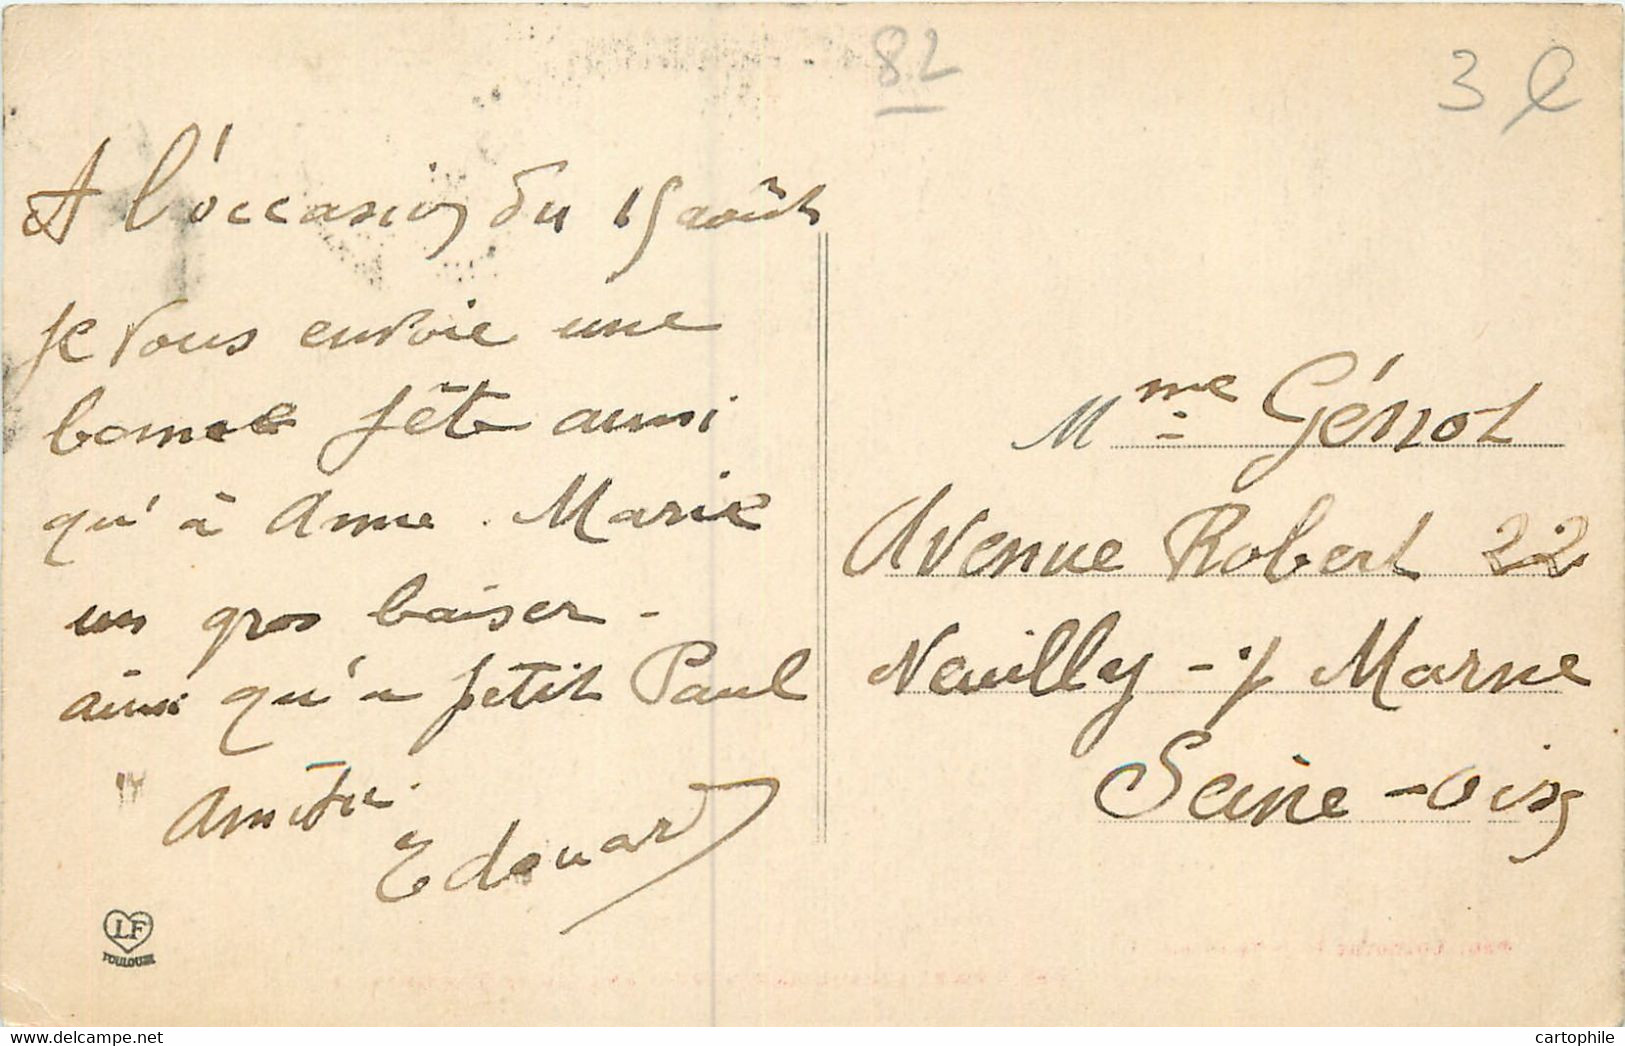 82
3
A l'occasion du 15 août
je vous envoie une
bonne fête aussi
qu'à Anne Marie
un gros baiser -
ainsi qu'a petit Paul
Amitié.
Edouard
Mme Génot
Avenue Robert 22
Neuilly - s/ Marne
Seine - oise
LF
TOULOUSE
www.delcampe.net
cartophile